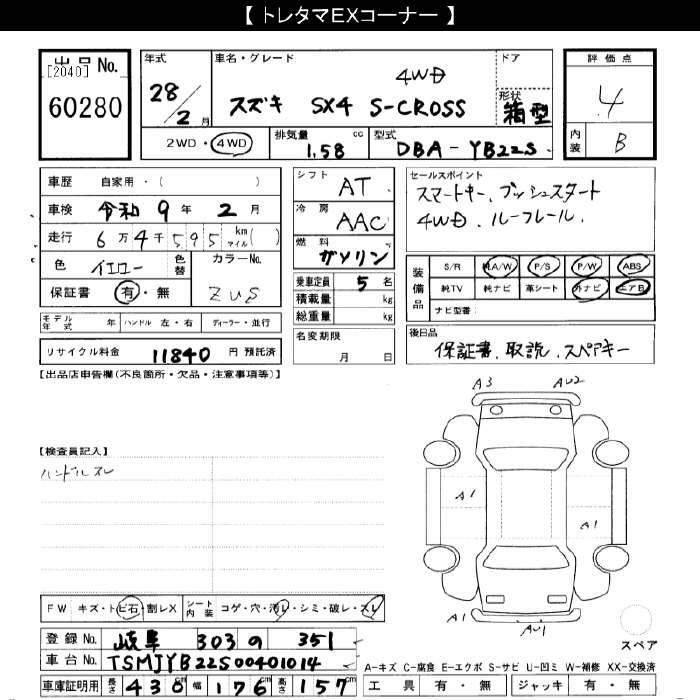 【 トレタマEXコーナー 】
出品No. [2040] 60280
年式 28/2月
車名・グレード 4WD スズキ SX4 S-CROSS
ドア
形状 箱型
評価点 4
内装 B
2WD・4WD
排気量 cc 1.58
型式 DBA-YB22S
車歴 自家用・( )
車検 令和 9年 2月
走行 6万4千595 km マイル( )
色 イエロー
色替
カラーNo. ZUS
保証書 有・無
シフト AT
冷房 AAC
燃料 ガソリン
乗車定員 5名
積載量 kg
総重量 kg
名変期限 月 日
セールスポイント
スマートキー、プッシュスタート
4WD、ルーフレール、
装備品
S/R 純A/W P/S P/W ABS
純TV 純ナビ 革シート 外ナビ エアB
ナビ型番:
モデル年式 年 ハンドル 左・右 ディーラー・並行
リサイクル料金 11840 円 預託済
後日品
保証書、取説、スペアキー
【出品店申告欄(不良箇所・欠品・注意事項等)】
【検査員記入】
ハンドルスレ
A3 AU2
A1
A1
AU1
スペア
FW キズ・トビ石・割レX
シート内装 コゲ・穴・汚レ・シミ・破レ・スレ
登録No. 岐阜 303 の 351
車台No. TSMJYB22S00401014
車庫証明用 長さ 430cm 幅 176cm 高さ 157cm
A-キズ C-腐食 E-エクボ S-サビ U-凹ミ W-補修 XX-交換済
工具 有・無 ジャッキ 有・無